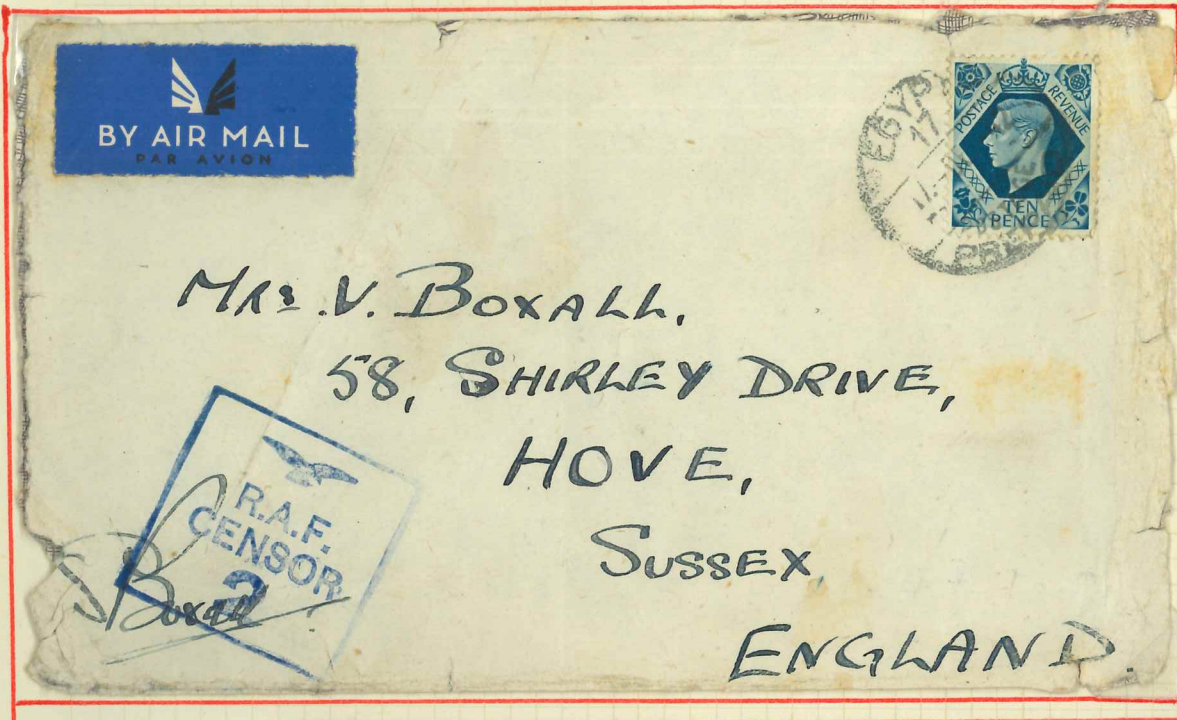 BY AIR MAIL
PAR AVION
EGYPT
17
PRE
POSTAGE
REVENUE
TEN
PENCE
Mrs. V. BOXALL,
58, SHIRLEY DRIVE,
HOVE,
SUSSEX,
ENGLAND.
R.A.F.
CENSOR
2
Boxall